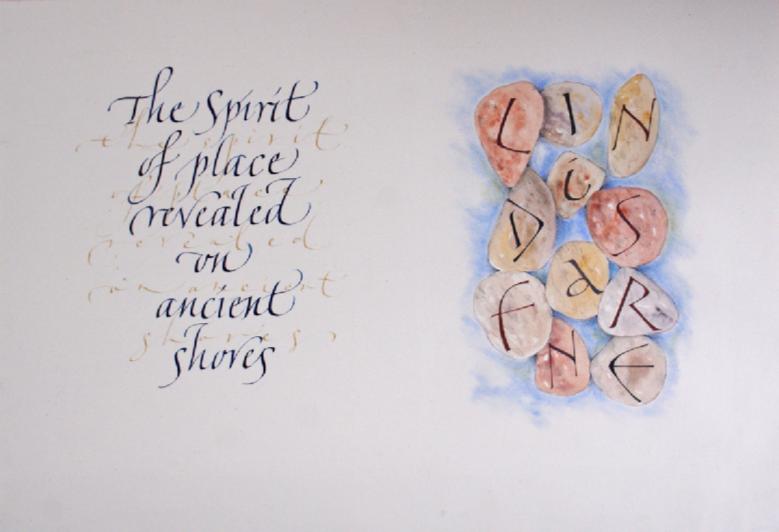 The Spirit
of place
revealed
on
ancient
shores
the spirit
of place
revealed
on ancient
shores
LIN
DiS
FaR
NE